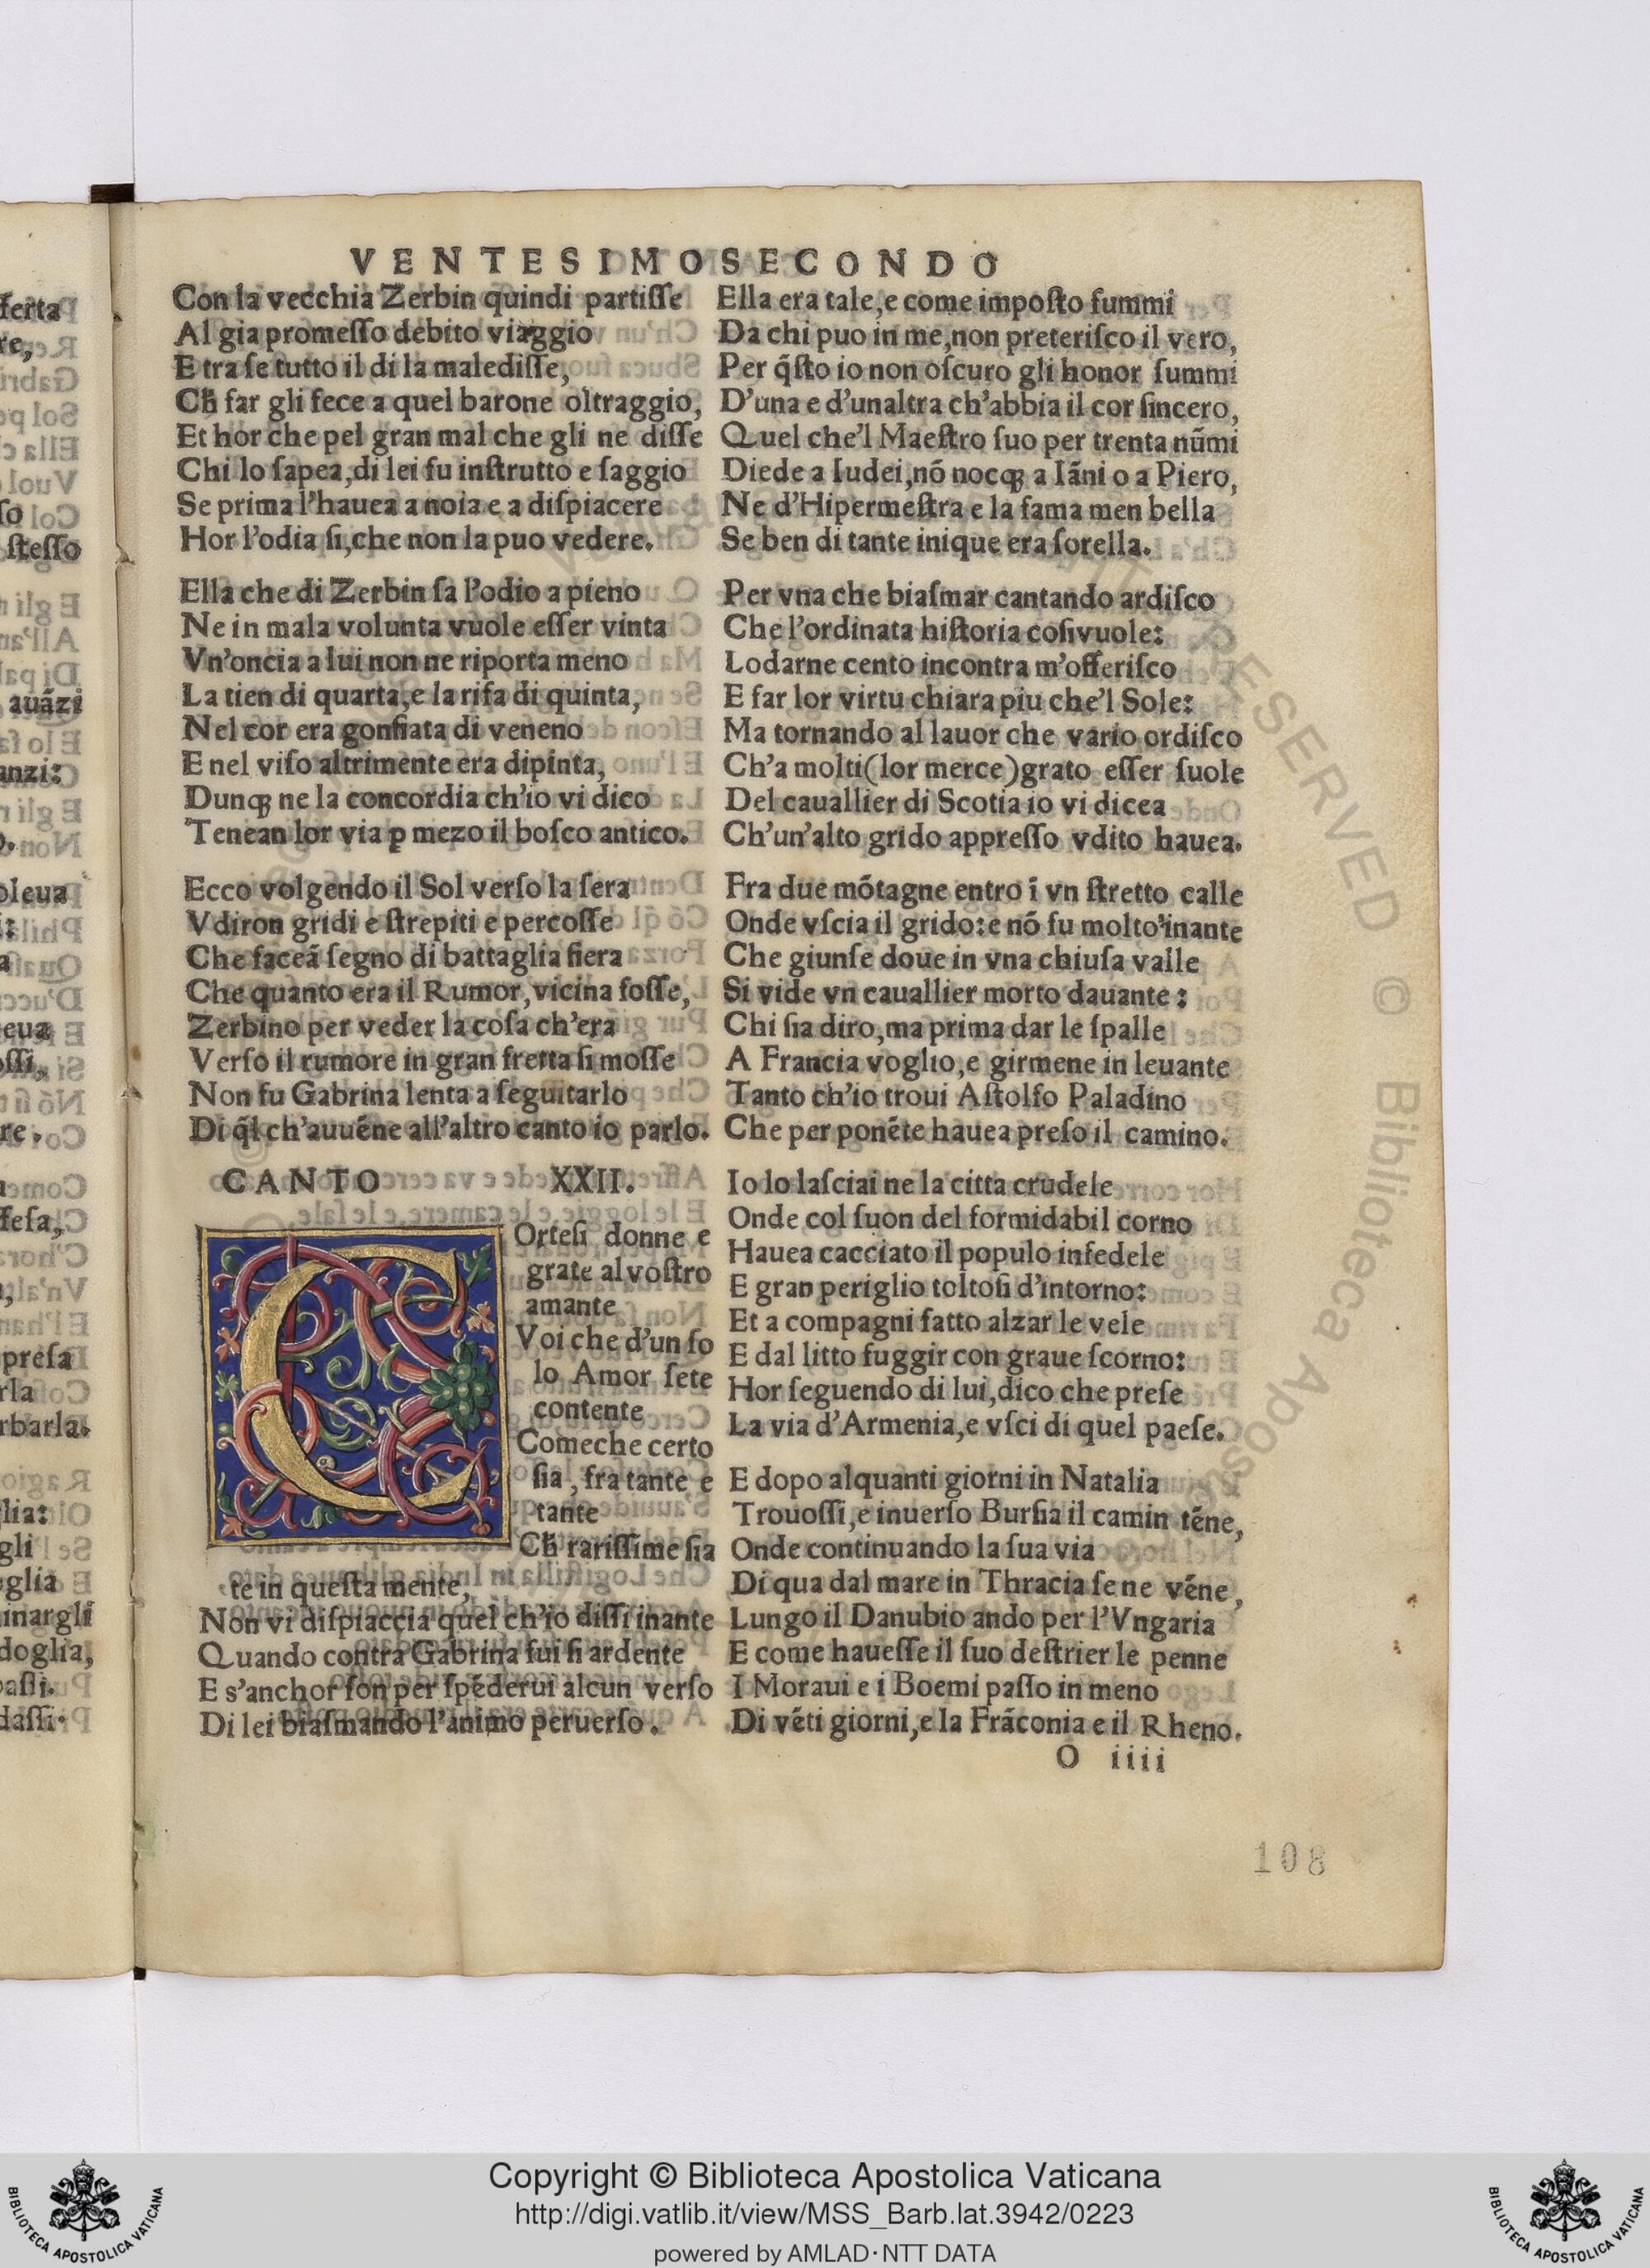 VENTESIMOSECONDO
Con la vecchia Zerbin quindi partiſſe
Al gia promeſſo debito viaggio
E tra ſe tutto il di la malediſſe,
Ch̄ far gli fece a quel barone oltraggio,
Et hor che pel gran mal che gli ne diſſe
Chi lo ſapea,di lei fu inſtrutto e ſaggio
Se prima l'hauea a noia e a diſpiacere
Hor l'odia ſi,che non la puo vedere.
Ella che di Zerbin ſa l'odio a pieno
Ne in mala volunta vuole eſſer vinta
Vn'oncia a lui non ne riporta meno
La tien di quarta,e la rifa di quinta,
Nel cor era gonfiata di veneno
E nel viſo altrimente era dipinta,
Dunqꝫ ne la concordia ch'io vi dico
Tenean lor via ꝑ mezo il boſco antico.
Ecco volgendo il Sol verſo la ſera
Vdiron gridi e ſtrepiti e percoſſe
Che faceã ſegno di battaglia fiera
Che quanto era il Rumor,vicina foſſe,
Zerbino per veder la coſa ch'era
Verſo il rumore in gran fretta ſi moſſe
Non fu Gabrina lenta a ſeguitarlo
Di q̃l ch'auuẽne all'altro canto io parlo.
CANTO XXII.
Orteſi donne e
grate al voſtro
amante
Voi che d'un ſo
lo Amor ſete
contente
Comeche certo
ſia, fra tante e
tante
Ch̄ rariſſime ſia
te in queſta mente,
Non vi diſpiaccia quel ch'io diſſi inante
Quando contra Gabrina fui ſi ardente
E s'anchor ſon per ſpẽderui alcun verſo
Di lei biaſmando l'animo peruerſo.
Ella era tale,e come impoſto fummi
Da chi puo in me,non preteriſco il vero,
Per q̃ſto io non oſcuro gli honor ſummi
D'una e d'unaltra ch'abbia il cor ſincero,
Quel che'l Maeſtro ſuo per trenta nũmi
Diede a Iudei,nõ nocqꝫ a Iãni o a Piero,
Ne d'Hipermeſtra e la fama men bella
Se ben di tante inique era ſorella.
Per vna che biaſmar cantando ardiſco
Che l'ordinata hiſtoria coſivuole:
Lodarne cento incontra m'offeriſco
E far lor virtu chiara piu che'l Sole:
Ma tornando al lauor che vario ordiſco
Ch'a molti(lor merce)grato eſſer ſuole
Del cauallier di Scotia io vi dicea
Ch'un'alto grido appreſſo vdito hauea.
Fra due mõtagne entro ĩ vn ſtretto calle
Onde vſcia il grido:e nõ fu molto inante
Che giunſe doue in vna chiuſa valle
Si vide vn cauallier morto dauante:
Chi ſia diro,ma prima dar le ſpalle
A Francia voglio,e girmene in leuante
Tanto ch'io troui Aſtolfo Paladino
Che per ponẽte hauea preſo il camino.
Io lo laſciai ne la citta crudele
Onde col ſuon del formidabil corno
Hauea cacciato il populo infedele
E gran periglio toltoſi d'intorno:
Et a compagni fatto alzar le vele
E dal litto fuggir con graue ſcorno:
Hor ſeguendo di lui,dico che preſe
La via d'Armenia,e vſci di quel paeſe.
E dopo alquanti giorni in Natalia
Trouoſſi,e inuerſo Burſia il camin tẽne,
Onde continuando la ſua via
Di qua dal mare in Thracia ſe ne vẽne,
Lungo il Danubio ando per l'Vngaria
E come haueſſe il ſuo deſtrier le penne
I Moraui e i Boemi paſſo in meno
Di vẽti giorni,e la Frãconia e il Rheno.
O iiii
108
ferta
re,
ſo
ſteſſo
auãzi
anzi:
oleua
eua
oſſi,
re.
feſa,
preſa
rla
rbarla.
glia:
gli
oglia
inargli
doglia,
paſſi.
daſſi.
RESERVED © Biblioteca Apos
Copyright © Biblioteca Apostolica Vaticana
http://digi.vatlib.it/view/MSS_Barb.lat.3942/0223
powered by AMLAD·NTT DATA
BIBLIOTECA APOSTOLICA VATICANA
BIBLIOTECA APOSTOLICA VATICANA